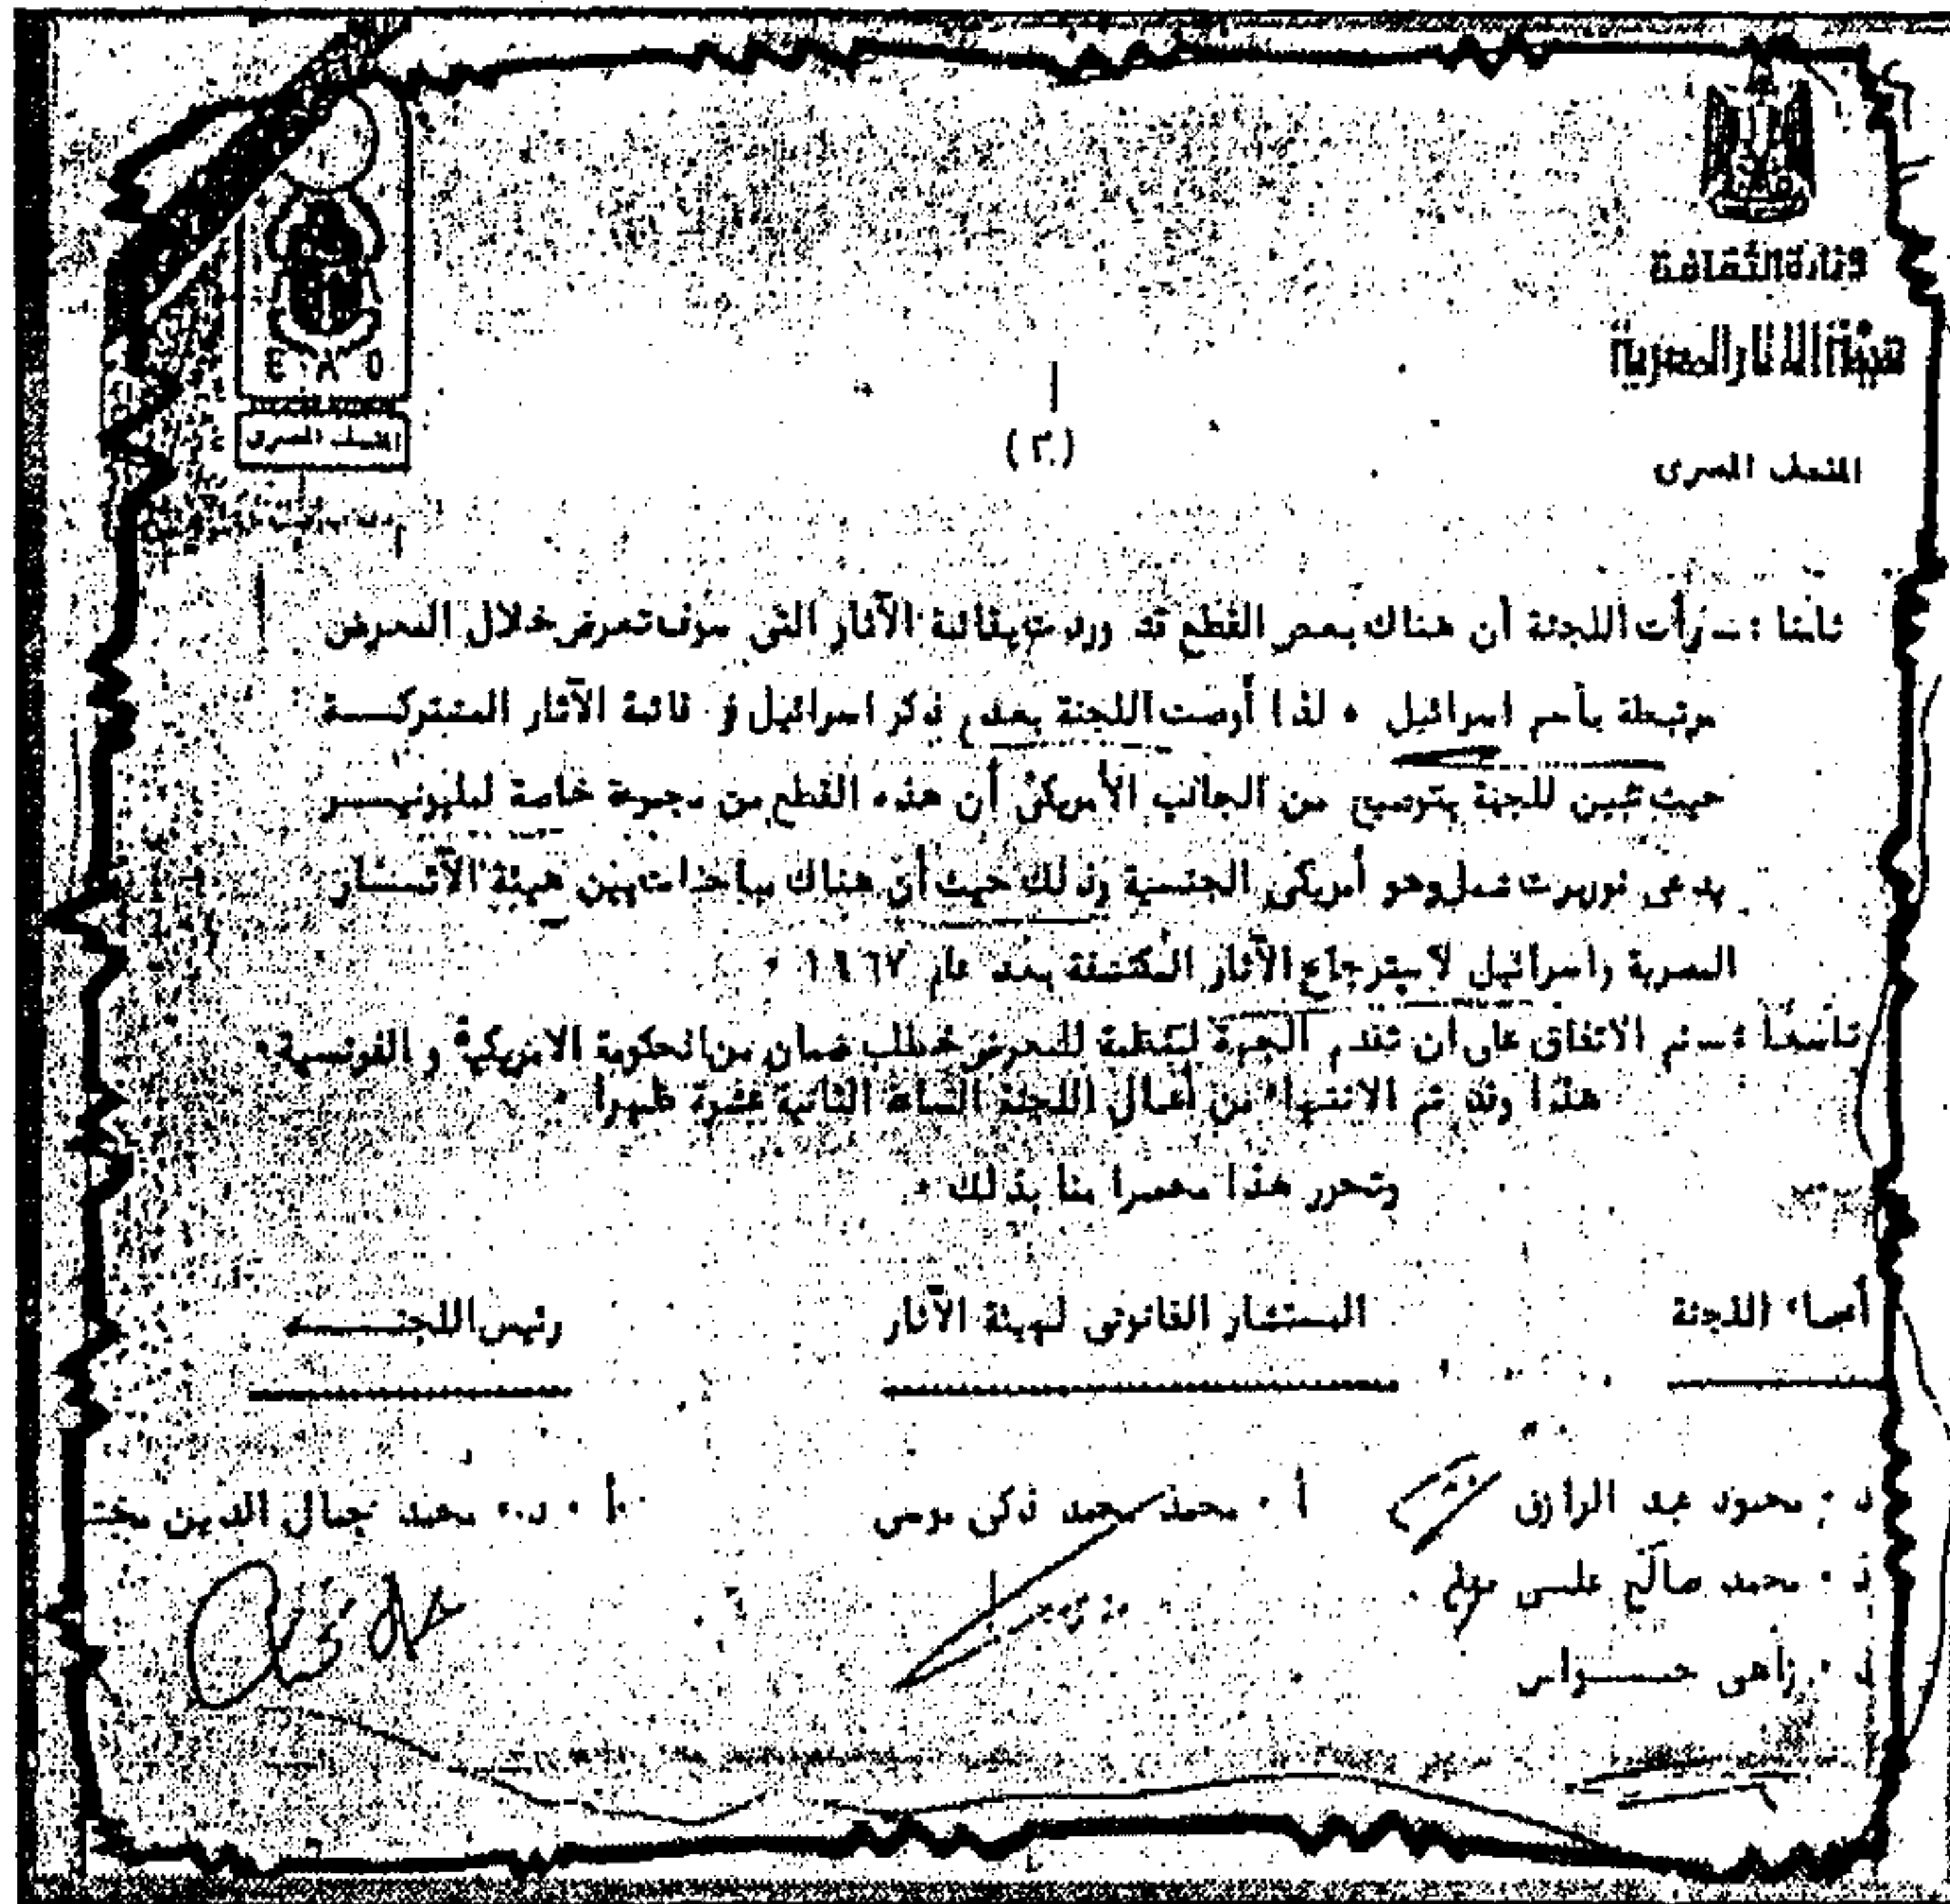 وزارة الثقافة
هيئة الآثار المصرية
المتحف المصرى
E A O
المتحف المصرى
(٣)
ثامنا : ــ رأت اللجنة أن هناك بعض القطع قد وردت بقائمة الآثار التى سوف تعرض خلال المعرض
مرتبطة بأسم اسرائيل ٠ لذا أوصت اللجنة بعدم ذكر اسرائيل فى قائمة الآثار المشتركـــة
حيث تبين للجنة بتوضيح من الجانب الأمريكى أن هذه القطع من مجموعة خاصة لمليونيـــر
يدعى نوربرت شمل وهو أمريكى الجنسية وذلك حيث أن هناك مباحثات بين هيئة الآثـــار
المصرية واسرائيل لاسترجاع الآثار المكتشفة بعد عام ١٩٦٧ ٠
تاسعا : ــ تم الاتفاق على أن تقدم الجهة المنظمة للمعرض خطاب ضمان من الحكومة الامريكية و الفرنسية ٠
هذا وقد تم الانتهاء من أعمال اللجنة الساعة الثانية عشرة ظهرا ٠
وتحرر هذا محضرا منا بذلك ٠
أعضاء اللجنة المستشار القانونى لهيئة الآثار رئيس اللجنـــة
د ٠ محمود عبد الرازق أ ٠ محمد محمد ذكى موسى أ ٠ د ٠ محمد جمال الدين مختـ
د ٠ محمد صالح علـى
د ٠ زاهى حـــواس